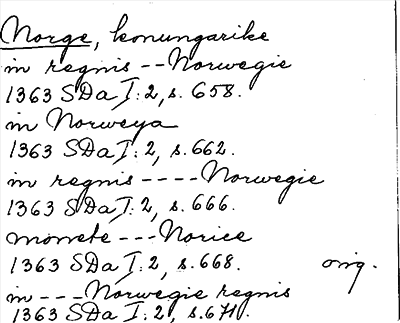 Norge, konungarike
in regnis -- Norwegie
1363 SDa I:2, s. 658.
in Norweya
1363 SDa I:2, s. 662.
in regnis ---- Norwegie
1363 SDa I:2, s. 666.
monete --- Norice
1363 SDa I:2, s. 668. orig.
in --- Norwegie regnis
1363 SDa I:2, s. 671.